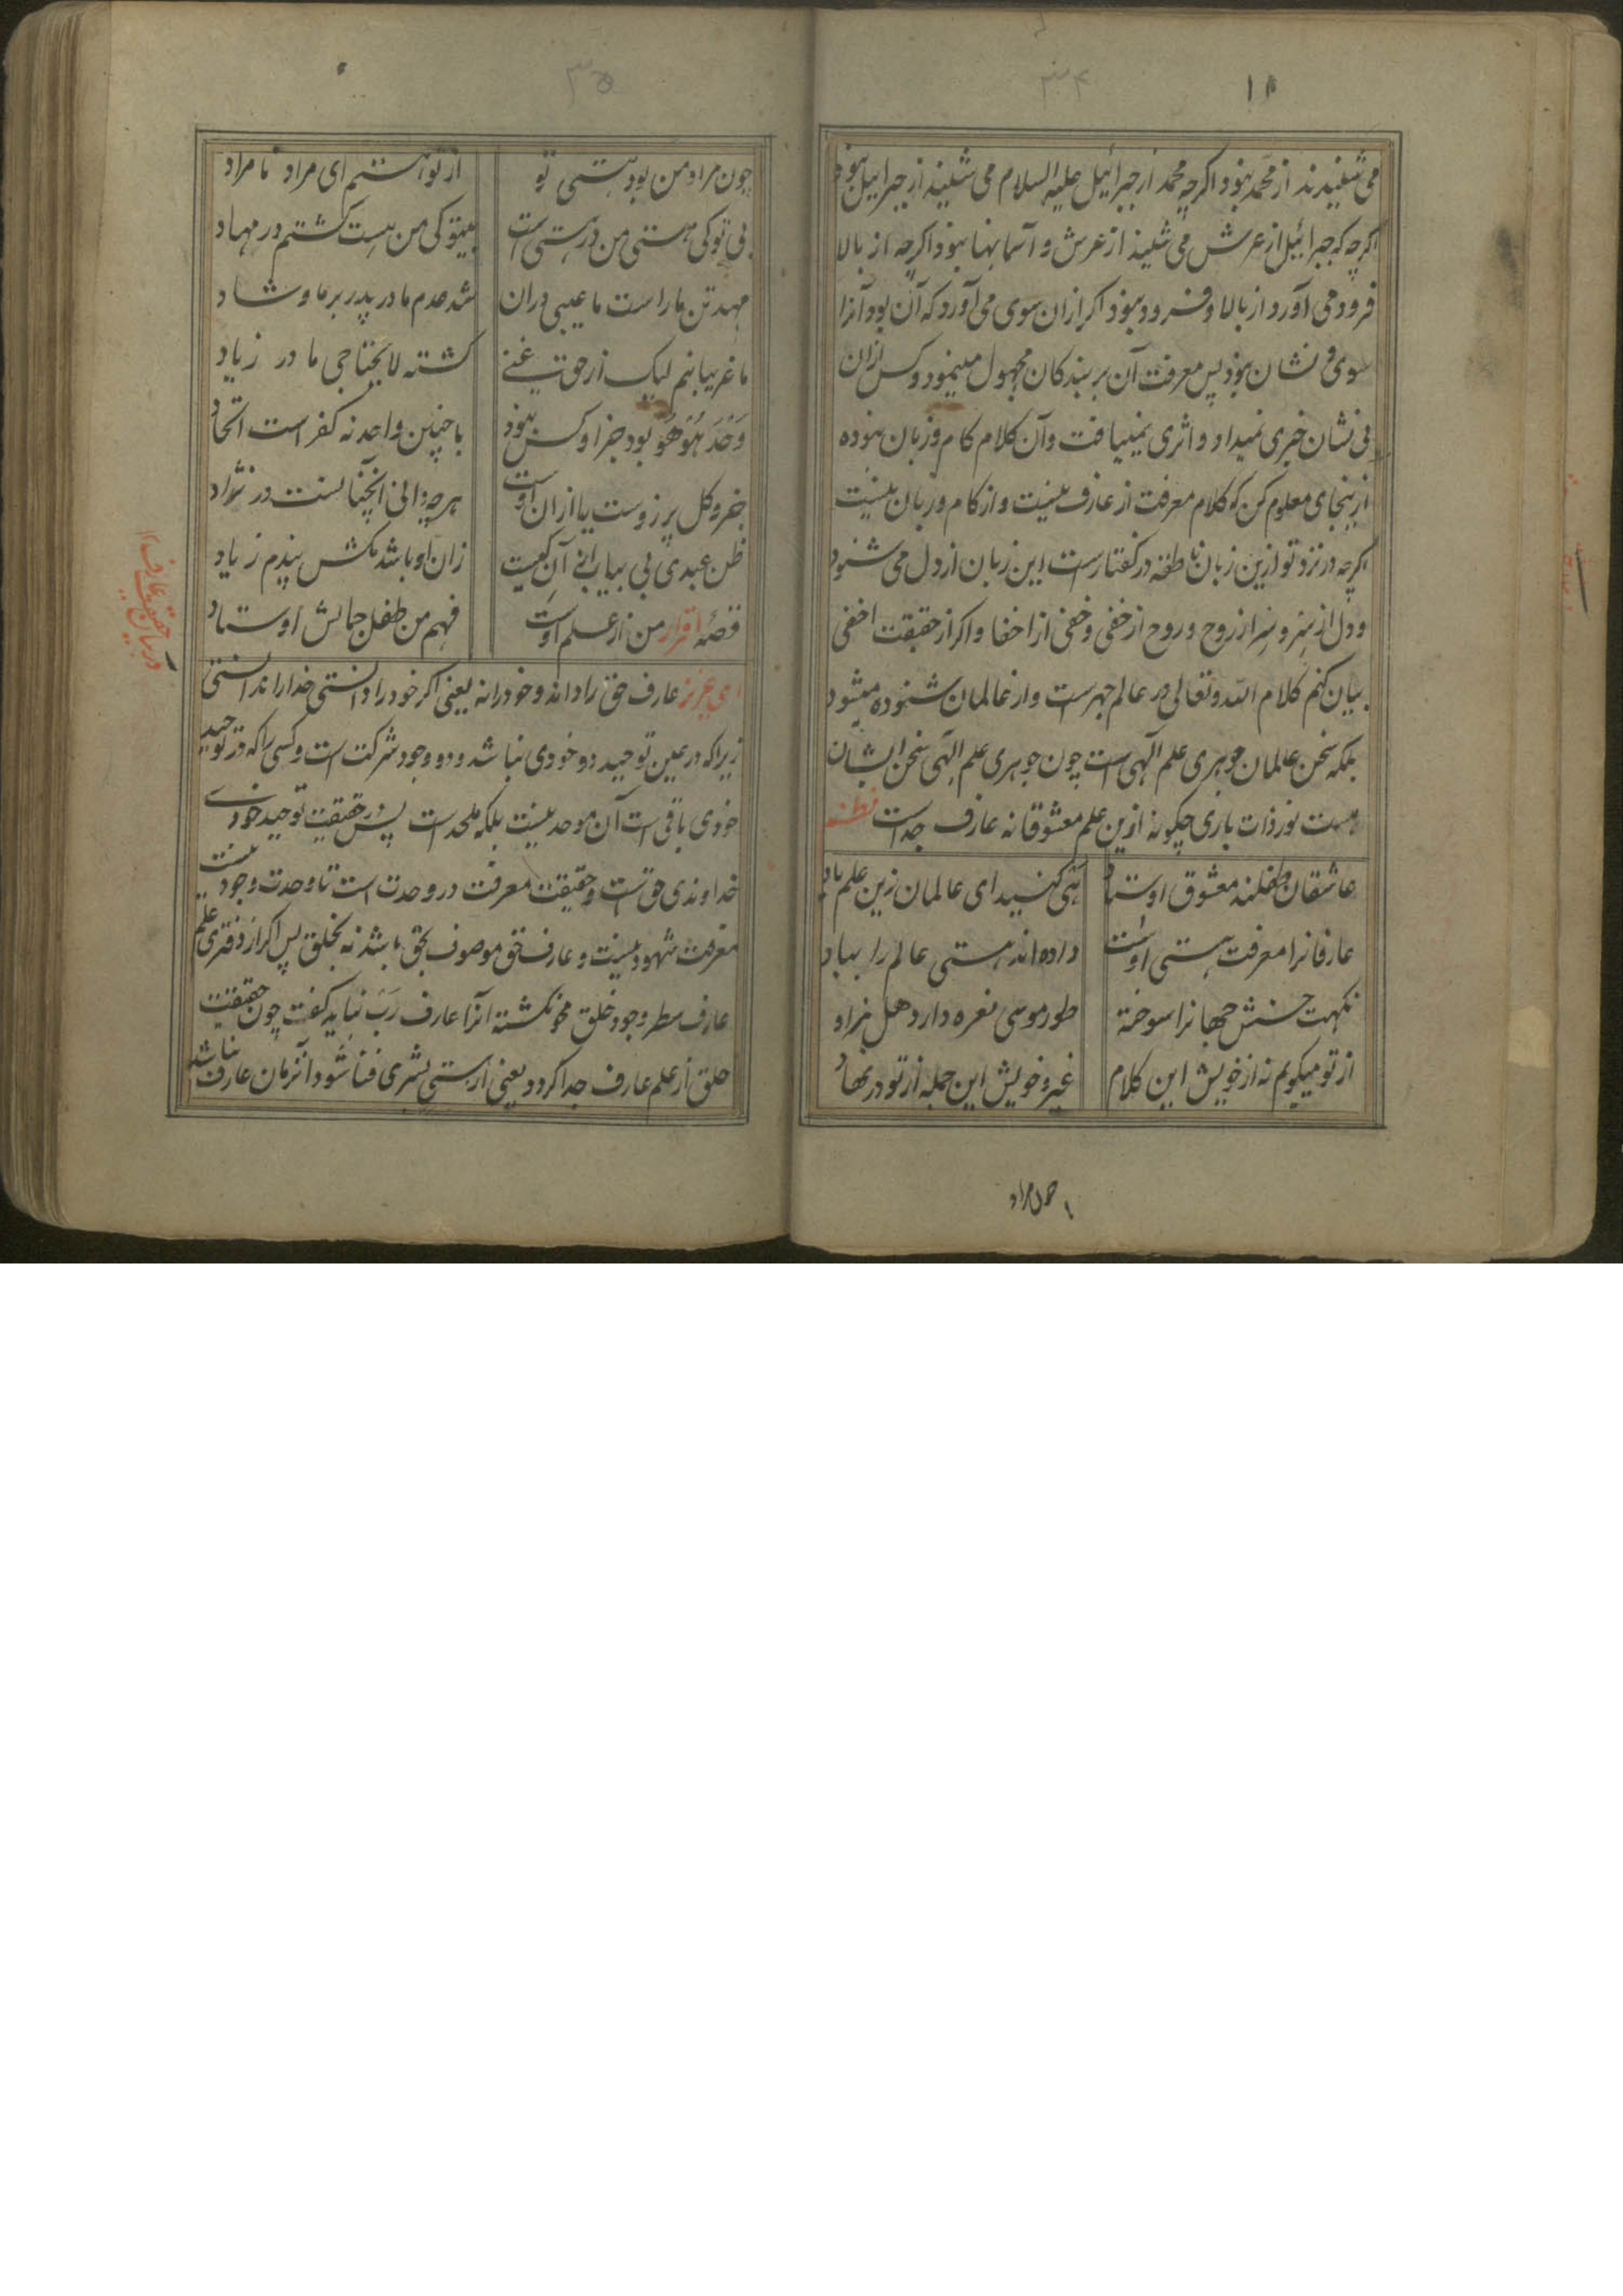 ۱۸
۳۴
می شنیدند از محمد نبود اگرچه محمد از جبرائیل علیه السلام می شنید از جبرائیل نبود
اگرچه که جبرائیل از عرش می شنید از عرش و آسمانها نبود اگرچه از بالا
فرود می آورد از بالا و فرود نبود اگر ازان سوی می آورد که آن بود آنرا
سوی و نشان نبود پس معرفت آن بر بندکان مجهول مینمود و کس ازان
بی نشان خبری نمیداد و اثری نمییافت و آن کلام کام و زبان نبوده
ازینجای معلوم کن که کلام معرفت از عارف نیست و از کام و زبان نیست
اگرچه در نزد تو ازین زبان ناطقه در گفتار است این زبان از دل می شنود
و دل از سر و سر از روح و روح از خفی و خفی از اخفا و اگر از حقیقت اخفی
بیان کنم کلام الله و تعالی در عالم جهر است و از عالمان شنوده میشود
بلکه سخن عالمان جوهری علم الهی است چون جوهری علم الهی سخن ایشان
هست نور ذات باری چگونه ازین علم معشوقانه عارف جداست قطعه
عاشقان طفلند معشوق اوستاد هی کنید ای عالمان زین علم یاد
عارفانرا معرفت هستی اوست داده اند هستی عالم را بباد
نکهت حسنش جهانرا سوخته طور موسی نعره دارد هل مزاد
از تو میگویم نه از خویش این کلام غیر و خویش این جمله از تو در نهاد
چون مراد
۳۵
چون مراد من بود هستی تو از تو هستیم ای مراد نامراد
بی تو کی هستی من در هستی است بیتو کی من هست گشتم در مهاد
مهد تن ما راست ما عیسی دران شد عدم مادر پدر بر ما و شاد
ما غریبانیم لیک از حق غنی گشته لایحتاجی ما در زیاد
وحد هو هو بود جز او کس نبود با چنین واحد نه کفر است اتحاد
جزو کل پر زوست یا ازان اوست هرچه دانی آنچنانست در نژاد
ظن عبدی بی بیانی آن کیست زان او باشد مکش پندم زیاد
قصه اقرار من از علم اوست فهم من طفل جمالش اوستاد
ای عزیز عارف حق را داند و خود را نه یعنی اگر خود را دانستی خدا را ندانستی
زیراکه در عین توحید دو خودی نباشد و دو وجود شرکت است و کسی را که در توحید
خودی باقی است آن موحد نیست بلکه ملحد است پس در حقیقت توحید خودی
خداوندی حق است و حقیقت معرفت در وحدت است تا وحدت وجود نیست
معرفت شهود نیست و عارف حق موصوف بحق باشد نه بخلق پس اگر از دفتری علم
عارف سطر وجود خلق محو نگشته آنرا عارف رب نباید گفت چون حقیقت
خلق از علم عارف جدا گردد یعنی از هستی بشری فنا شود آنزمان عارف باشد
در بیان حقیقت عارف